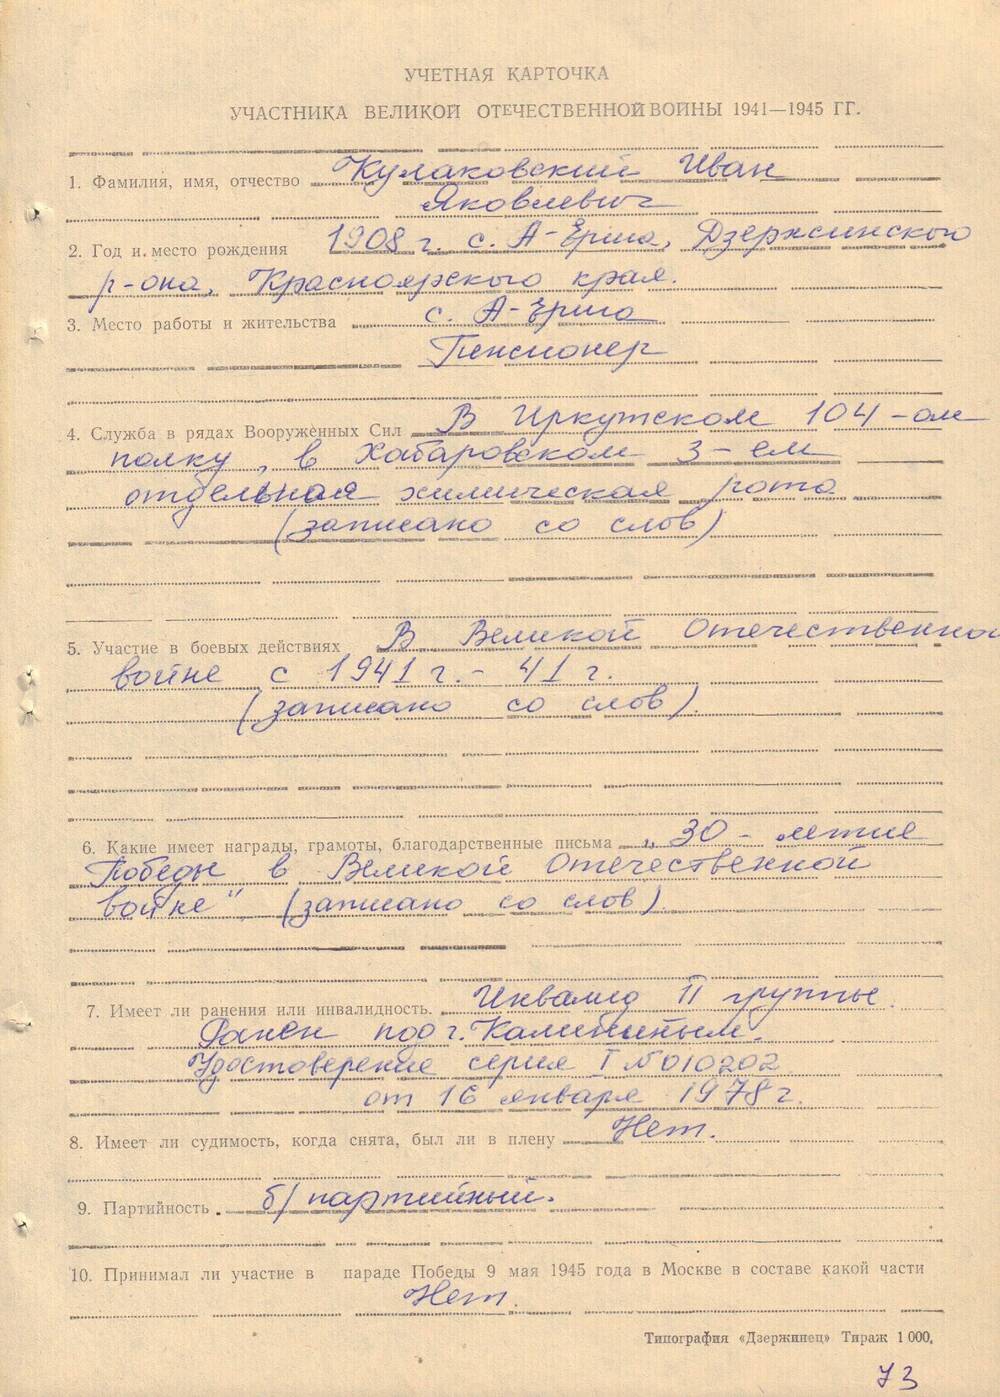 УЧЕТНАЯ КАРТОЧКА
УЧАСТНИКА ВЕЛИКОЙ ОТЕЧЕСТВЕННОЙ ВОЙНЫ 1941—1945 ГГ.
1. Фамилия, имя, отчество Кулаковский Иван
Яковлевич
2. Год и место рождения 1908 г. с. А-Ерша, Дзержинского
р-она, Красноярского края.
3. Место работы и жительства с. А-Ерша
Пенсионер
4. Служба в рядах Вооружённых Сил В Иркутском 104-ом
полку, в Хабаровском 3-ем
отдельная химическая рота
(записано со слов)
5. Участие в боевых действиях В Великой Отечественной
войне с 1941 г. - 41 г.
(записано со слов).
6. Какие имеет награды, грамоты, благодарственные письма „30-летие
Победы в Великой Отечественной
войне" (записано со слов).
7. Имеет ли ранения или инвалидность. Инвалид II группы.
Ранен под г. Калининым.
Удостоверение серия I № 010202
от 16 января 1978 г.
8. Имеет ли судимость, когда снята, был ли в плену Нет.
9. Партийность. б/партийный.
10. Принимал ли участие в параде Победы 9 мая 1945 года в Москве в составе какой части
Нет.
Типография «Дзержинец» Тираж 1 000.
73